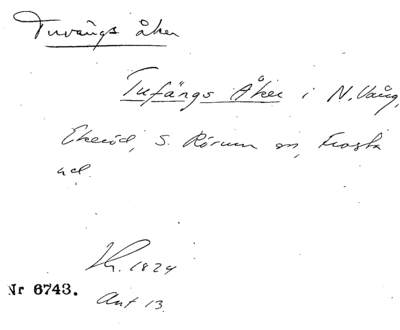 Tuvångs åker
Tufängs Åker i N. Vång,
Ekeröd, S. Rörum sn, Frosta
hd.
Lm. 1824
Akt 13.
Nr 6743.